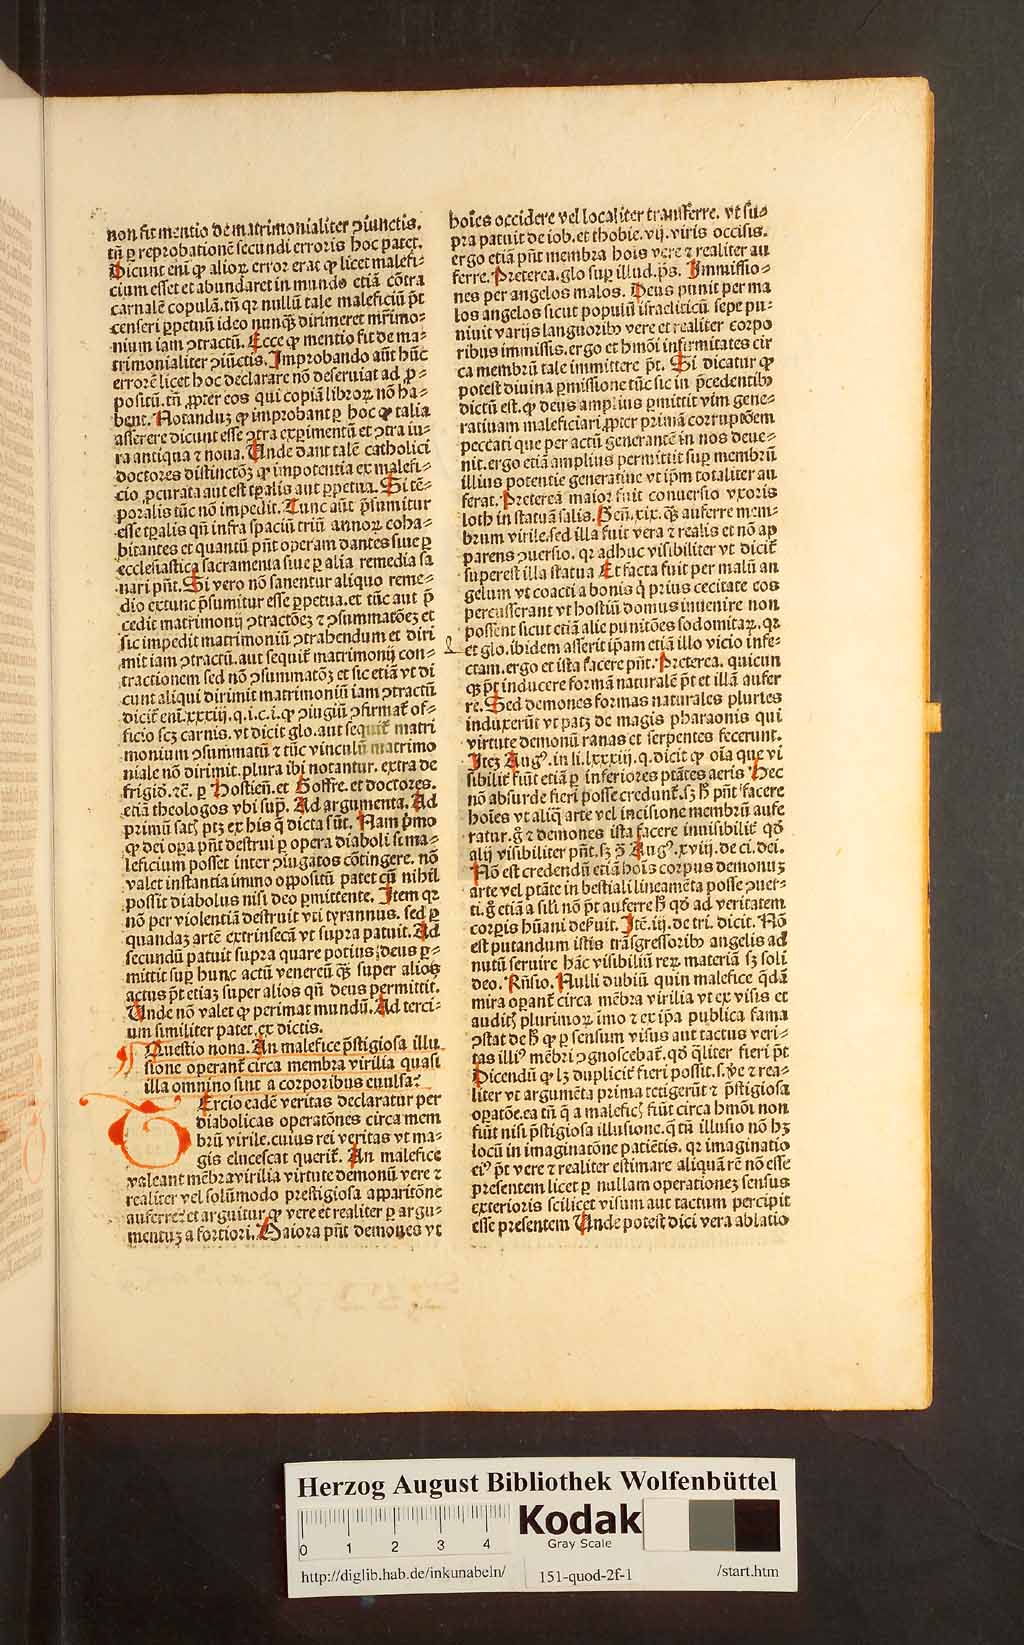 non fit mentio de matrimonialiter ꝯiunctis.
tñ ꝑ reprobationē secundi erroris hoc patet.
Dicunt eni ꝙ alioꝝ error erat ꝙ licet malefi⸗
cium esset et abundaret in mundo etiā cōtra
carnalē copulā. tñ qꝛ nullū tale maleficiū p̄t
censeri ꝑpetuū ideo nunqͣꝫ dirimeret mr̄imo⸗
nium iam ꝯtractū. Ecce ꝙ mentio fit de ma⸗
trimonialiter ꝯiūctis. Improbando aūt hūc
errorē licet hoc declarare nō deseruiat ad ꝓ⸗
positū. tñ ꝓpter eos qui copiā libroꝝ nō ha⸗
bent. Notanduꝫ ꝙ improbant ꝑ hoc ꝙ talia
asserere dicunt esse ꝯtra exꝑimentū et ꝯtra iu⸗
ra antiqua ⁊ noua. Unde dant talē catholici
doctores distinctōꝫ ꝙ impotentia ex malefi⸗
cio ꝓcurata aut est tꝑalis aut ꝑpetua. Si tē⸗
poralis tūc nō impedit. Tunc aūt p̄sumitur
esse tꝑalis qñ infra spaciū triū annoꝝ coha⸗
bitantes et quantū pn̄t operam dantes siue ꝑ
ecclesiastica sacramenta siue ꝑ alia remedia sa
nari pn̄t. Si vero nō sanentur aliquo reme⸗
dio extunc p̄sumitur esse ꝑpetua. et tūc aut p̄
cedit matrimonij ꝯtractōeꝫ ⁊ ꝯsummatōeꝫ et
sic impedit matrimoniū ꝯtrahendum et diri
mit iam ꝯtractū. aut sequit̄ matrimonij con⸗
tractionem sed nō ꝯsummatōꝫ et sic etiā vt di
cunt aliqui dirimit matrimoniū iam ꝯtractū
dicit̄ eni. xxxiij. q. i. c. i. ꝙ ꝯiugiū ꝯfirmat̄ of⸗
ficio scꝫ carnis. vt dicit glo. aut sequit̄ matri
monium ꝯsummatū ⁊ tūc vinculū matrimo
niale nō dirimit. plura ibi notantur. extra de
frigid. ⁊c̄. ꝑ Hostien̄. et Goffre. et doctores.
etiā theologos vbi sup̄. Ad argumenta. Ad
primū satꝭ ptꝫ ex his q̄ dicta sūt. Nam p̄mo
ꝙ dei oꝑa pn̄t destrui ꝑ opera diaboli si ma⸗
leficium posset inter ꝯiugatos cōtingere. nō
valet instantia immo oppositū patet cū nihil
possit diabolus nisi deo ꝑmittente. Item qꝛ
nō per violentiā destruit vti tyrannus. sed ꝑ
quandaꝫ artē extrinsecā vt supra patuit. Ad
secundū patuit supra quare potius deus ꝑ⸗
mittit suꝑ hunc actū venereū qͣꝫ super alios
actus p̄t etiaꝫ super alios qñ deus permittit.
Unde non valet ꝙ perimat mundū. Ad terci⸗
um similiter patet. ex dictis.
Questio nona. An malefice p̄stigiosa illu
sione operant̄ circa membra virilia quasi
illa omnino sint a corporibus euulsa?
Tercio eadē veritas declaratur per
diabolicas operatōnes circa mem
brū virile. cuius rei veritas vt ma⸗
gis elucescat querit̄. An malefice
valeant mēbra virilia virtute demonū vere ⁊
realiter vel solūmodo prestigiosa apparitōne
auferre? et arguitur ꝙ vere et realiter ꝑ argu⸗
mentuꝫ a fortiori. Maiora pn̄t demones vt
hoīes occidere vel localiter transferre. vt su⸗
pra patuit de iob. et thobie. vij. viris occisis.
ergo etiā pn̄t membra hoīs vere ⁊ realiter au
ferre. Preterea. glo suꝑ illud. ps̄. Immissio⸗
nes per angelos malos. Deus punit per ma
los angelos sicut populū israeliticū sepe pu⸗
niuit varijs languoribꝫ vere et realiter corpo
ribus immissis. ergo et hmōi infirmitates cir
ca membrū tale immittere p̄t. Si dicatur ꝙ
potest diuina ꝑmissione tūc sic in p̄cedentibꝫ
dictū est. ꝙ deus amplius ꝑmittit vim gene⸗
ratiuam maleficiari ꝓpter primā corruptōem
peccati que per actū generantē in nos deue⸗
nit. ergo etiā amplius permittit suꝑ membrū
illius potentie generatiue vt ip̄m totaliter au
ferat. Preterea maior fuit conuersio vxoris
loth in statuā salis. Gen̄. xix. qͣꝫ auferre mem⸗
brum virile. sed illa fuit vera ⁊ realis et nō ap
parens ꝯuersio. qꝛ adhuc visibiliter vt dicit̄
superest illa statua Et facta fuit per malū an
gelum vt coacti a bonis q̄ prius cecitate eos
percusserant vt hostiū domus inuenire non
possent sicut etiā alie punitōes sodomitaꝝ. qꝛ
et glo. ibidem asserit ipam etiā illo vicio infe⸗
ctam. ergo et ista facere pn̄t. Preterea. quicun
qꝫ p̄t inducere formā naturalē p̄t et illā aufer
re. Sed demones formas naturales pluries
induxerūt vt patꝫ de magis pharaonis qui
virtute demonū ranas et serpentes fecerunt.
Iteꝫ Augꝰ. in li. lxxxiij. q. dicit ꝙ oīa que vi
sibilit̄ fiūt etiā ꝑ inferiores ptātes aeris Hec
nō absurde fieri posse credunt̄. sꝫ h̄ pn̄t facere
hoīes vt aliq̄ arte vel incisione membrū aufe
ratur. g̊ ⁊ demones ista facere inuisibilit̄ qd̄
alij visibiliter pn̄t. sꝫ ꝯ̄ Augꝰ. xviij. de ci. dei.
Nō est credendū etiā hoīs corpus demonuꝫ
arte vel ptāte in bestiali lineamēta posse ꝯuer⸗
ti. g̊ etiā a sili nō p̄t auferre h̄ qd̄ ad veritatem
corꝑis hūani deẜuit. Itē. iij. de tri. dicit. Nō
est putandum istis trāsgressoribꝫ angelis ad
nutū seruire hāc visibiliū reꝝ materiā sꝫ soli
deo. Rn̄sio. Nulli dubiū quin malefice q̄dā
mira oꝑant̄ circa mēbra virilia vt ex visis et
auditꝭ plurimoꝝ imo ⁊ ex ip̄a publica fama
ꝯstat de h̄ ꝙ ꝑ sensum visus aut tactus veri⸗
tas illiꝰ mēbri ꝯgnoscebat̄. qd̄ q̄liter fieri p̄t
Dicendū ꝙ lꝫ duplicit̄ fieri possit. s. v̄e ⁊ rea⸗
liter vt argumēta prima tetigerūt ⁊ p̄stigiosa
oꝑatōe. ea tñ q̄ a maleficꝭ fiūt circa hmōi non
fiūt nisi p̄stigiosa illusione. q̄ tñ illusio nō hꝫ
locū in imaginatōne patiētis. qꝛ imaginatio
eiꝰ p̄t vere ⁊ realiter estimare aliquā rē nō esse
presentem licet ꝑ nullam operationeꝫ sensus
exterioris scilicet visum aut tactum percipit
esse presentem Unde potest dici vera ablatio
Herzog August Bibliothek Wolfenbüttel
0 1 2 3 4
Kodak
Gray Scale
http://diglib.hab.de/inkunabeln/ 151-quod-2f-1 /start.htm